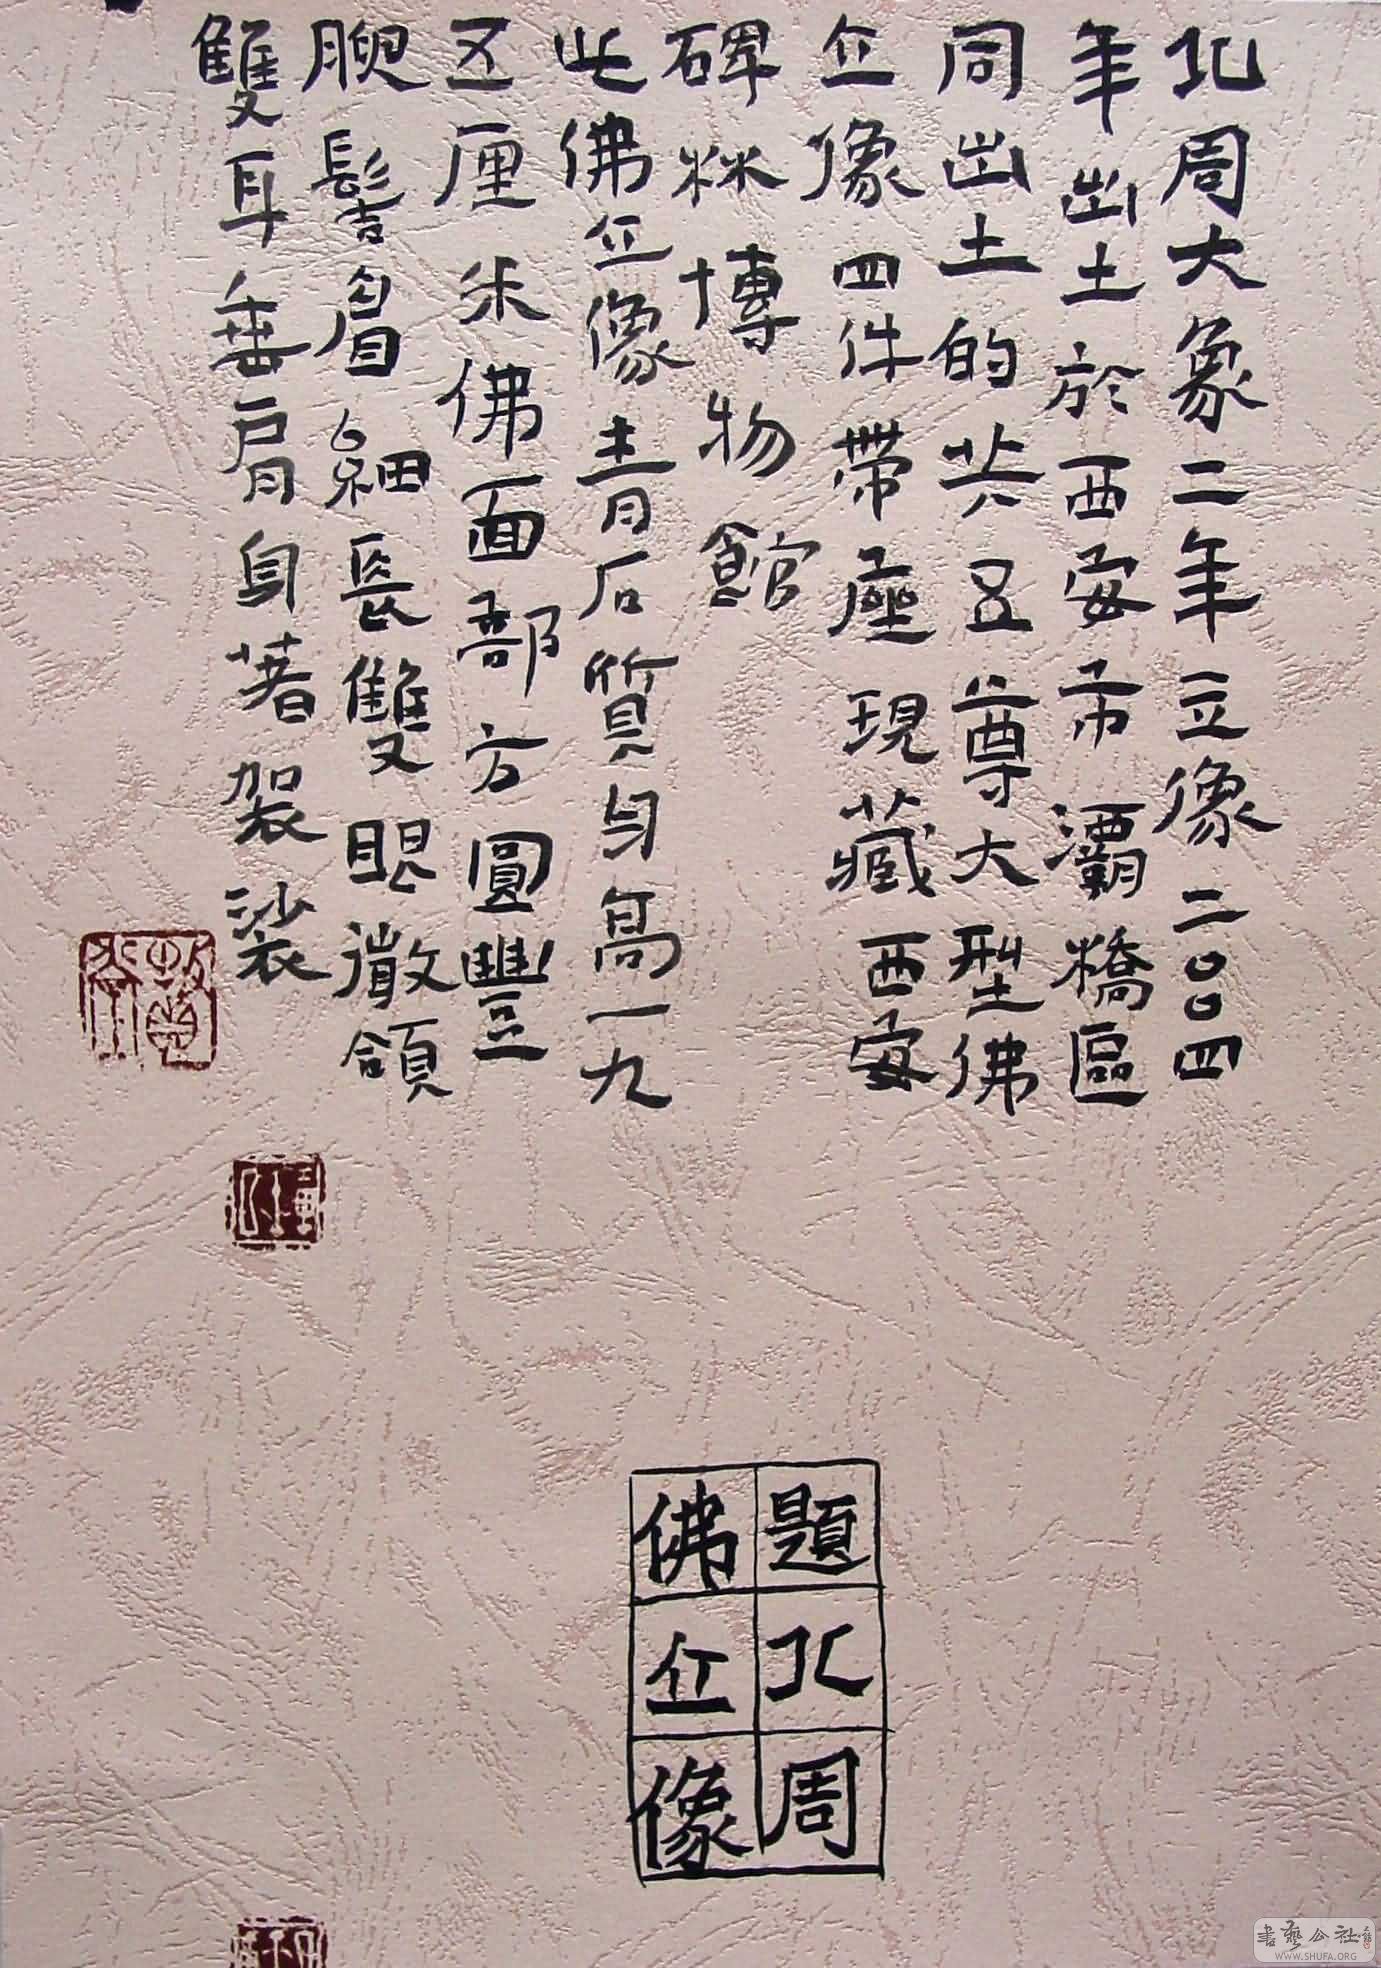 北周大象二年立像二〇〇四
年出土於西安市灞橋區
同出土的共五尊大型佛
立像四件帶座現藏西安
碑林博物館
此佛立像青石質身高一九
五厘米佛面部方圓豐
腴髻眉細長雙眼微頷
雙耳垂肩身著袈裟
題北周
佛立像
書藝公社
WWW.SHUFA.ORG